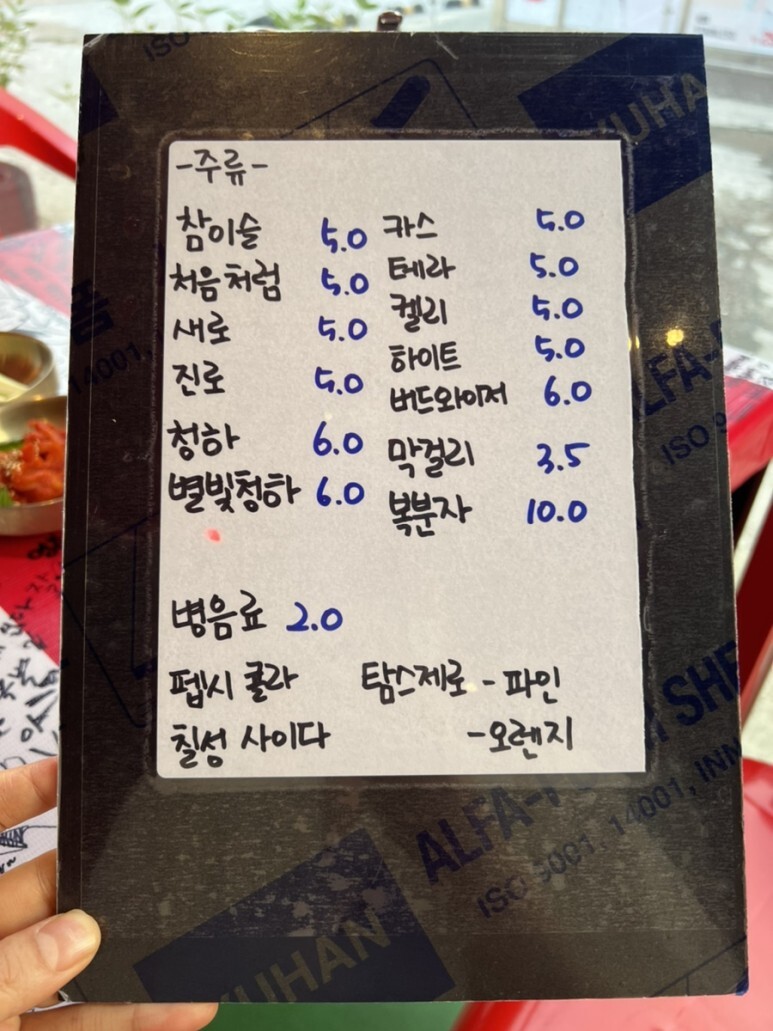 -주류-
참이슬 5.0
처음처럼 5.0
새로 5.0
진로 5.0
청하 6.0
별빛청하 6.0
카스 5.0
테라 5.0
켈리 5.0
하이트 5.0
버드와이저 6.0
막걸리 3.5
복분자 10.0
병음료 2.0
펩시 콜라
칠성 사이다
탐스제로 - 파인
- 오렌지
ALFA-
ISO 9001, 14001, INM